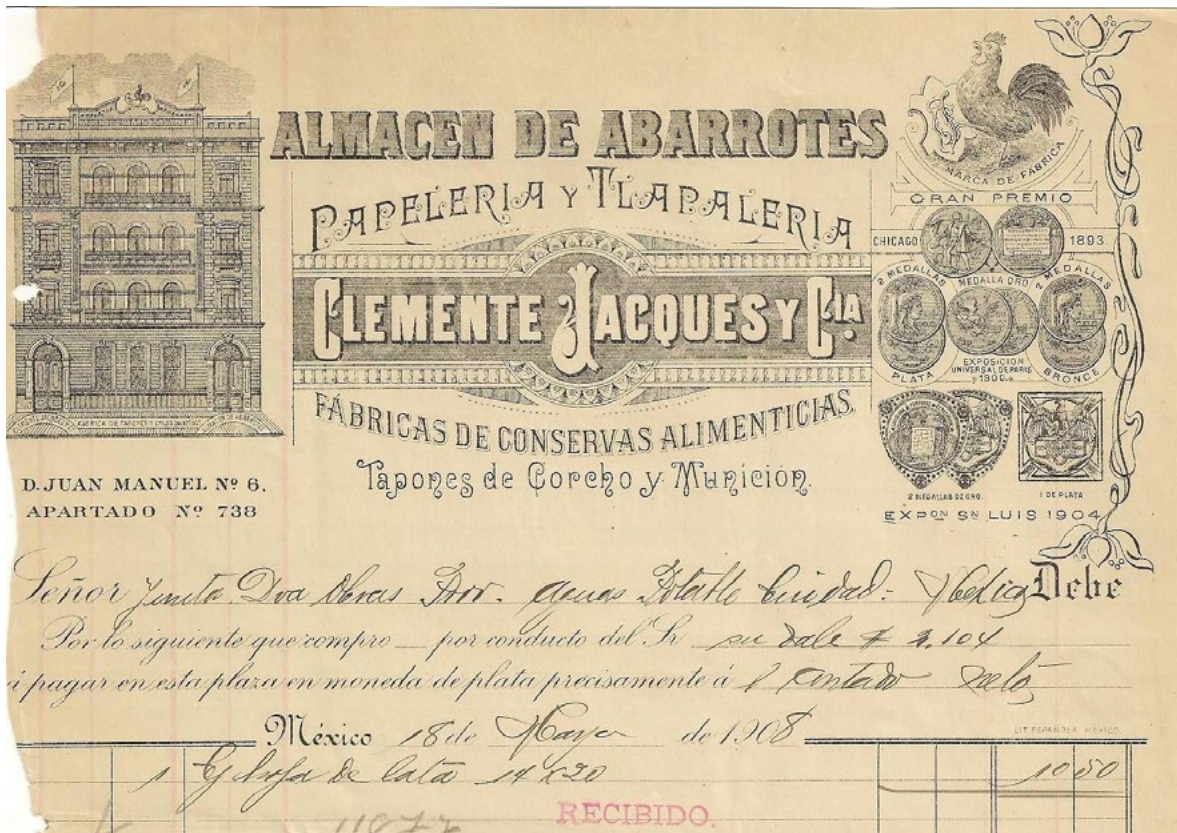 ALMACEN DE ABARROTES
PAPELERIA Y TLAPALERIA
CLEMENTE JACQUES Y CIA.
FÁBRICAS DE CONSERVAS ALIMENTICIAS
Tapones de Corcho y Munición.
MARCA DE FÁBRICA
GRAN PREMIO
CHICAGO 1893
2 MEDALLAS PLATA
MEDALLA ORO
2 MEDALLAS BRONCE
EXPOSICION
UNIVERSAL DE PARIS
1900
2 MEDALLAS DE ORO
1 DE PLATA
EXPON SN LUIS 1904
D. JUAN MANUEL Nº 6.
APARTADO Nº 738
Señor Junta Dra Obras Prov. Aguas Potable Ciudad = Mexico Debe
Por lo siguiente que compro por conducto del Sr su vale # 2.104
á pagar en esta plaza en moneda de plata precisamente á l contado neto
México 18 de Mayo de 1908
LIT. ESPAÑOLA MEXICO
1 hoja de lata 14 x 20 10 50
RECIBIDO.